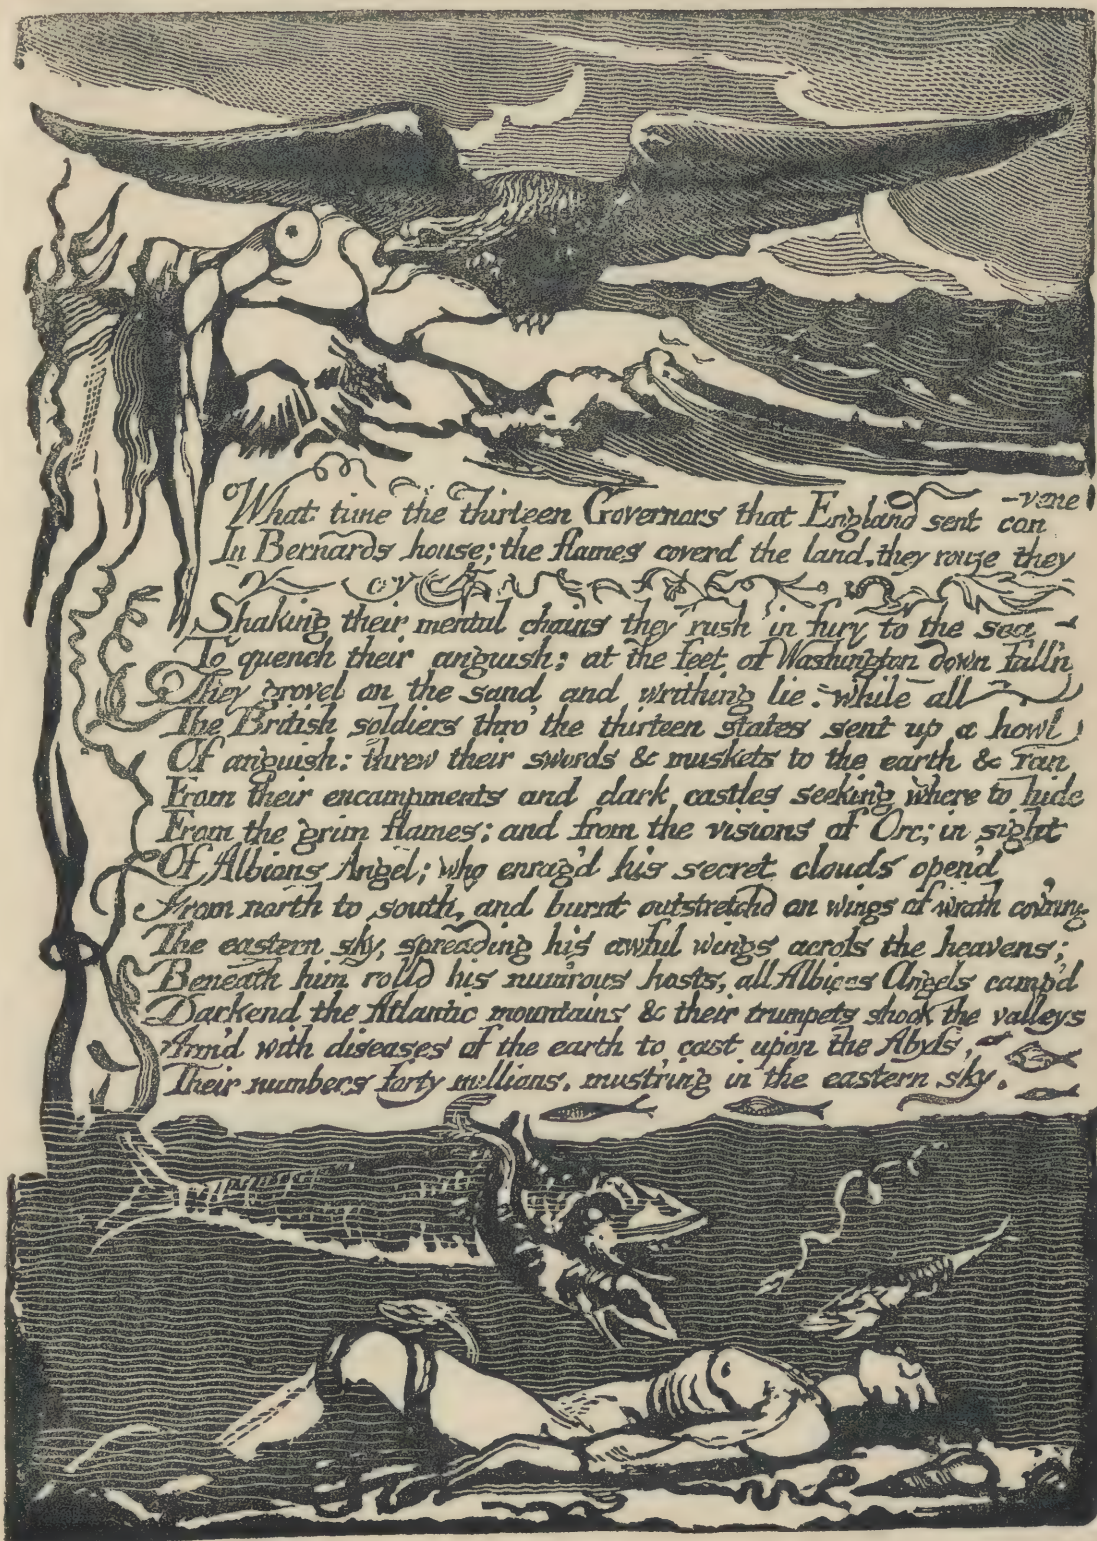 What time the thirteen Governors that England sent con
-vene
In Bernards house; the flames coverd the land, they rouze they
cry
Shaking their mental chains they rush in fury to the sea
To quench their anguish; at the feet of Washington down fall'n
They grovel on the sand and writhing lie. while all
The British soldiers thro' the thirteen states sent up a howl
Of anguish: threw their swords & muskets to the earth & ran
From their encampments and dark castles seeking where to hide
From the grim flames; and from the visions of Orc; in sight
Of Albions Angel; who enrag'd his secret clouds open'd
From north to south, and burnt outstretchd on wings of wrath cov'ring
The eastern sky, spreading his awful wings across the heavens;
Beneath him rolld his num'rous hosts, all Albions Angels camp'd
Darkend the Atlantic mountains & their trumpets shook the valleys
Arm'd with diseases of the earth to cast upon the Abyss,
Their numbers forty millions, must'ring in the eastern sky.